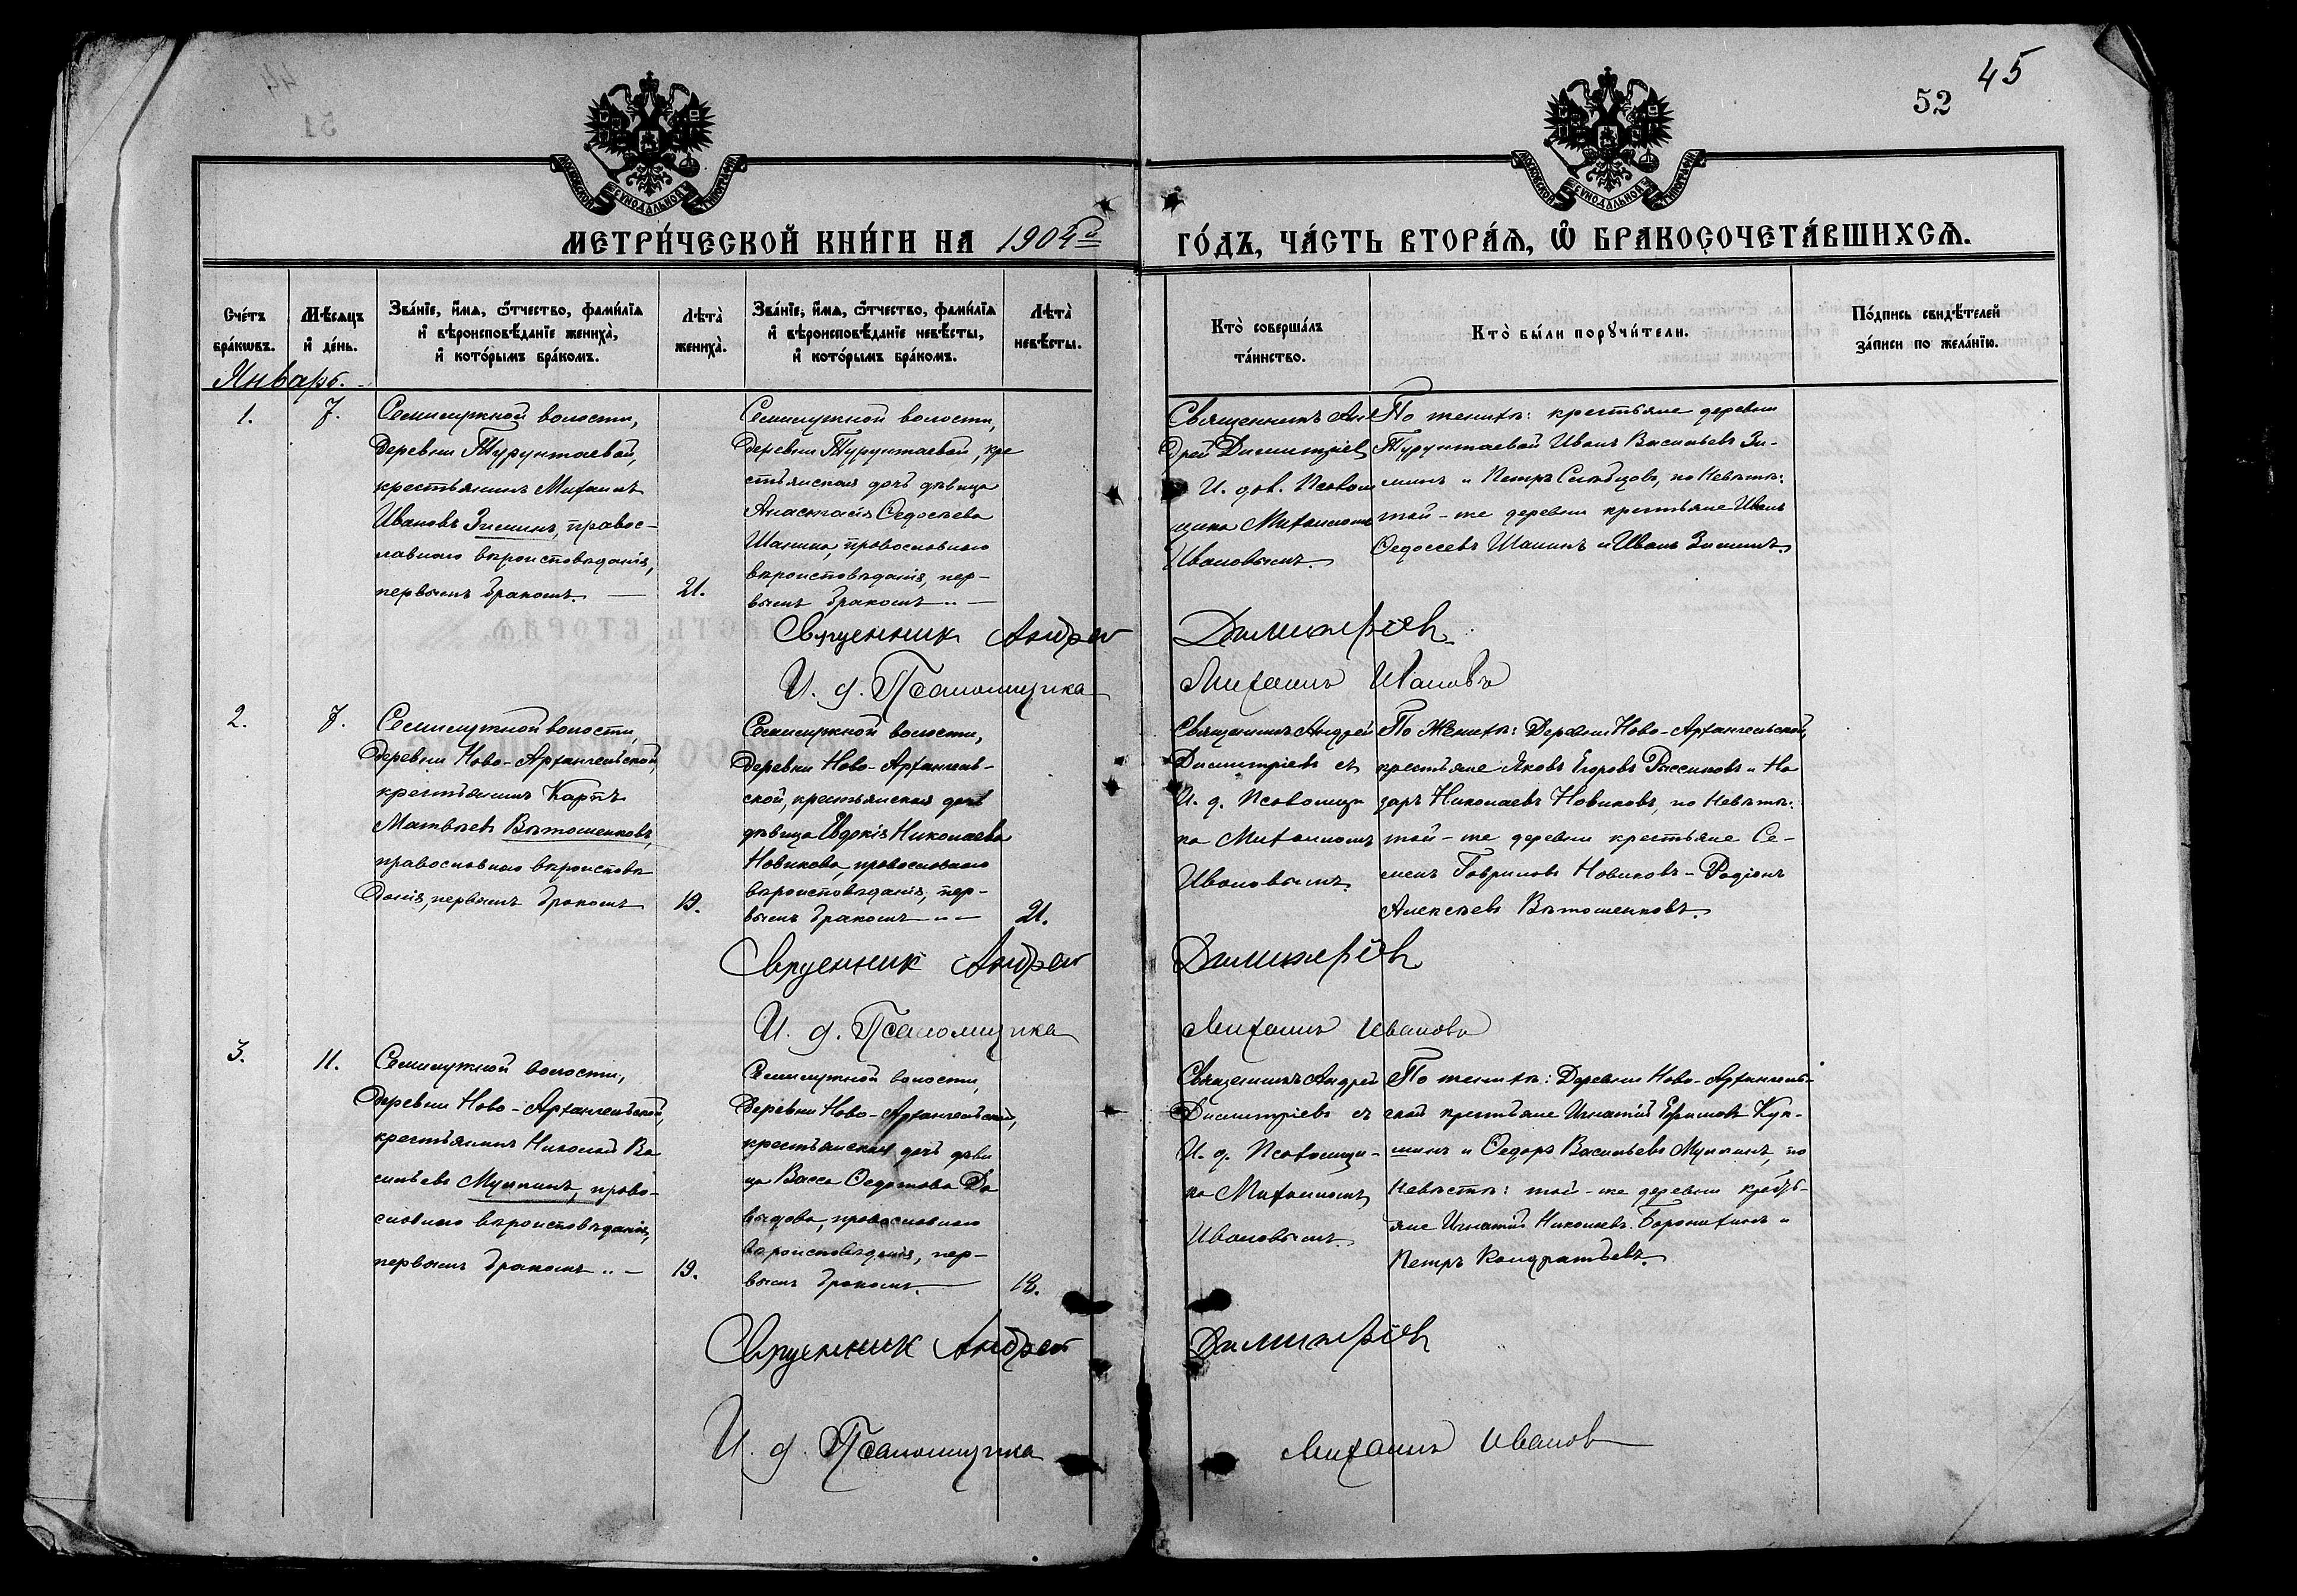 45
52
МЕТРИ́ЧЕСКОЙ КНИ́ГИ НА 1904й
ГО́ДЪ, ЧА́СТЬ ВТОРА́Ѧ, Ѽ БРАКОСОЧЕТА́ВШИХСѦ.
Сче́тъ бра́кѡвъ.
Мѣ́сѧцъ и҆ де́нь.
Зва́нїе, и҆́мѧ, ѻ҆́тчество, фами́лїѧ
и҆ вѣроисповѣ́данїе жениха̀,
и҆ кото́рымъ бра́комъ.
Лѣта̀ жениха̀.
Зва́нїе, и҆́мѧ, ѻ҆́тчество, фами́лїѧ
и҆ вѣроисповѣ́данїе невѣ́сты,
и҆ кото́рымъ бра́комъ.
Лѣта̀ невѣ́сты.
Кто̀ соверша́лъ
та́инство.
Кто̀ бы́ли порꙋчи́тели.
По́дпись свидѣ́телей
за́писи по жела́нїю.
Январь.
1.
7.
Семилужной волости,
деревни Турунтаевой,
крестьянинъ Михаилъ
Ивановъ Зиминъ, правос-
лавнаго вѣроисповѣданія,
первымъ бракомъ.
21.
Семилужной волости,
деревни Турунтаевой, кре
стьянская дочь дѣвица
Анастасія Федосѣева
Шанина, православнаго
вѣроисповѣданія, пер-
вымъ бракомъ
Священникъ Ан
дрей Димитріевъ
И. дол. Псалом
щика Михаиломъ
Ивановымъ.
По женихѣ: крестьяне деревни
Турунтаевой Иванъ Васильевъ Зи-
минъ и Петръ, по Невѣстѣ:
той-же деревни крестьяне Иванъ
Федосеевъ Шанинъ и Иванъ Зиминъ.
Священник Андрей Димитріев
И. д. Псаломщика Михаилъ Ивановъ
2.
7.
Семилужной волости,
деревни Ново-Архангельской,
крестьянинъ Карпъ
Матвѣевъ Вѣтошенковъ,
православнаго вѣроисповѣ
данія, первымъ бракомъ
19.
Семилужной волости,
деревни Ново-Архангель-
ской, крестьянская дочь
дѣвица Евдокія Николаева
Новикова, православнаго
вѣроисповѣданія, пер-
вымъ бракомъ
21.
Священникъ Андрей
Димитріевъ съ
И. д. Псаломщи
ка Михаиломъ
Ивановымъ.
По Женихѣ: Деревни Ново-Архангельской,
крестьяне Яковъ Егоровъ и На
заръ Николаевъ Новиковъ, по Невѣстѣ:
той-же деревни крестьяне Се-
менъ Гавриловъ Новиковъ - Родіонъ
Алексѣевъ Вѣтошенковъ.
Священник Андрей Димитріев
И. д. Псаломщика Михаилъ Ивановъ
3.
11.
Семилужной волости,
деревни Ново-Архангельской,
крестьянинъ Николай Ва
сильевъ, право-
славнаго вѣроисповѣданія,
первымъ бракомъ
19.
Семилужной волости,
деревни Ново-Архангельской,
крестьянская дочь дѣви
ца Васса Федотова Да
выдова, православнаго
вѣроисповѣданія, пер-
вымъ бракомъ.
18.
Священникъ Андрей
Димитріевъ съ
И. д. Псаломщи-
ка Михаиломъ
Ивановымъ.
По женихѣ: Деревни Ново-Архангель-
ской крестьяне Игнатій Ефимовъ Кук-
шинъ и Федоръ Васильевъ, по
Невѣстѣ: той-же деревни кресть-
яне Игнатій Николаевъ и
Петръ Кондратьевъ.
Священник Андрей Димитріев
И. д. Псаломщика Михаилъ Иванов